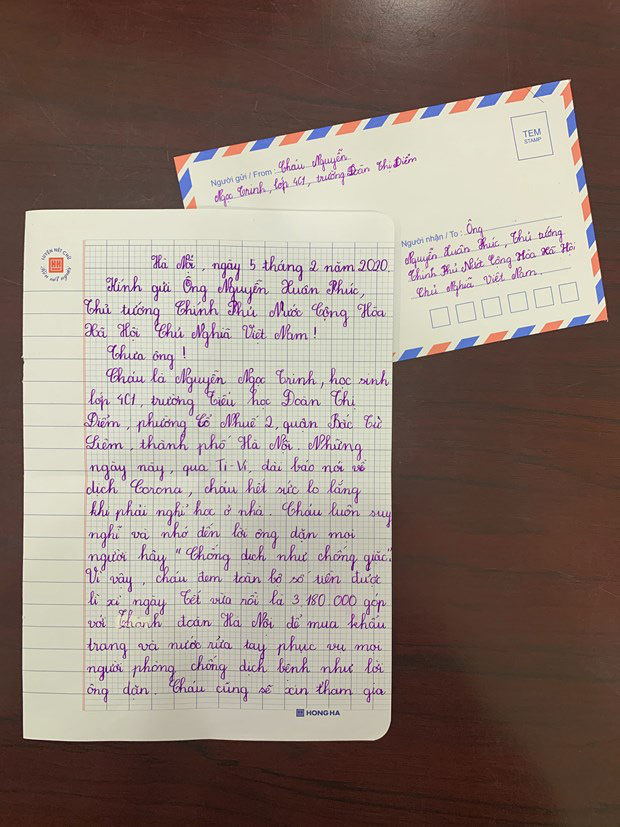 TEM
STAMP
Người gửi / From : Cháu Nguyễn
Ngọc Trinh, lớp 4C1, trường Đoàn Thị Điểm
Người nhận / To : Ông
Nguyễn Xuân Phúc, Thủ tướng
Chính Phủ Nước Cộng Hòa Xã Hội
Chủ Nghĩa Việt Nam
Hà Nội, ngày 5 tháng 2 năm 2020.
Kính gửi Ông Nguyễn Xuân Phúc,
Thủ tướng Chính Phủ Nước Cộng Hòa
Xã Hội Chủ Nghĩa Việt Nam !
Thưa ông !
Cháu là Nguyễn Ngọc Trinh, học sinh
lớp 4C1, trường Tiểu học Đoàn Thị
Điểm, phường Cổ Nhuế 2, quận Bắc Từ
Liêm, thành phố Hà Nội. Những
ngày này, qua Ti-Vi, đài báo nói về
dịch Corona, cháu hết sức lo lắng
khi phải nghỉ học ở nhà. Cháu luôn suy
nghĩ và nhớ đến lời ông dặn mọi
người hãy "Chống dịch như chống giặc".
Vì vậy, cháu đem toàn bộ số tiền được
lì xì ngày Tết vừa rồi là 3.180.000 góp
với Thành đoàn Hà Nội để mua khẩu
trang và nước rửa tay phục vụ mọi
người phòng chống dịch bệnh như lời
ông dặn. Cháu cũng sẽ xin tham gia
HONG HA